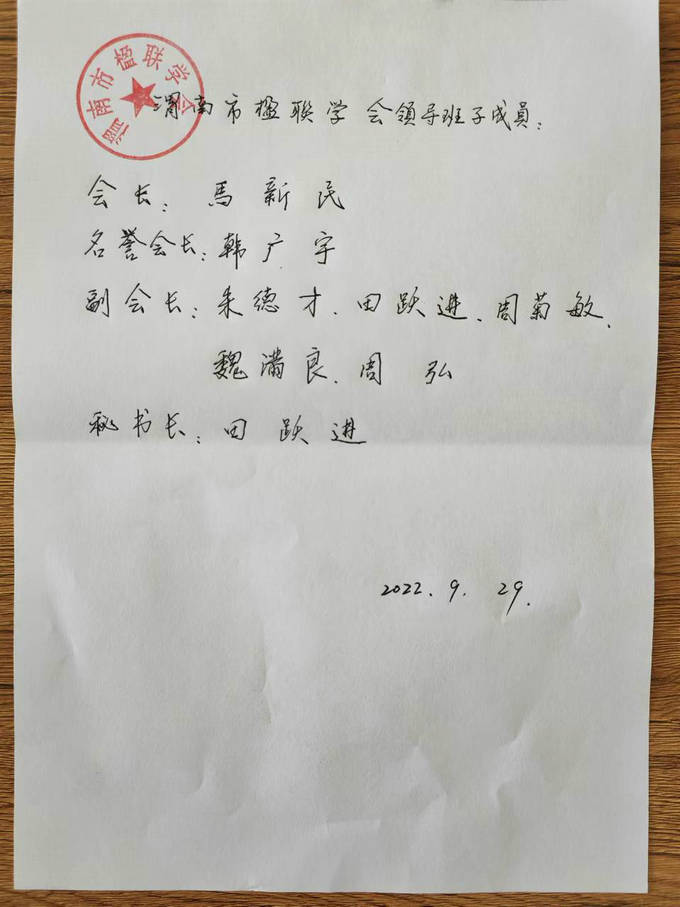 渭南市楹联学会
渭南市楹聯学会领导班子成员:
会长: 馬新民
名誉会长: 韩广宇
副会长: 朱德才、田跃进、周菊敏、
魏满良、周弘
秘书长: 田跃进
2022.9.29.